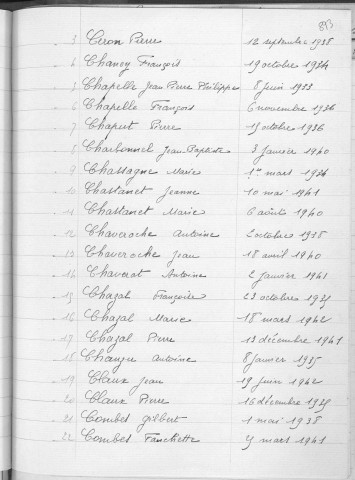 3 Ceron Pierre 12 septembre 1938
4 Chancy François 19 octobre 1934
5 Chapelle Jean Pierre Philippe 8 juin 1933
6 Chapelle François 6 novembre 1936
7 Chaput Pierre 19 octobre 1936
8 Charbonnel Jean Baptiste 3 janvier 1940
9 Chassagne Marie 1er mars 1936
10 Chastanet Jeanne 10 mai 1941
11 Chastanet Marie 6 août 1940
12 Chaveroche Antoine 2 octobre 1938
13 Chaveroche Jean 18 avril 1940
14 Chaverot Antoine 2 janvier 1941
15 Chazal Françoise 23 octobre 1935
16 Chazal Marie 18 mars 1942
17 Chazal Pierre 13 décembre 1941
18 Antoine 8 janvier 1935
19 Claux Jean 19 juin 1942
20 Claux Pierre 16 décembre 1935
21 Combes Gilbert 1 mai 1938
22 Combes Fanchette 9 mars 1941